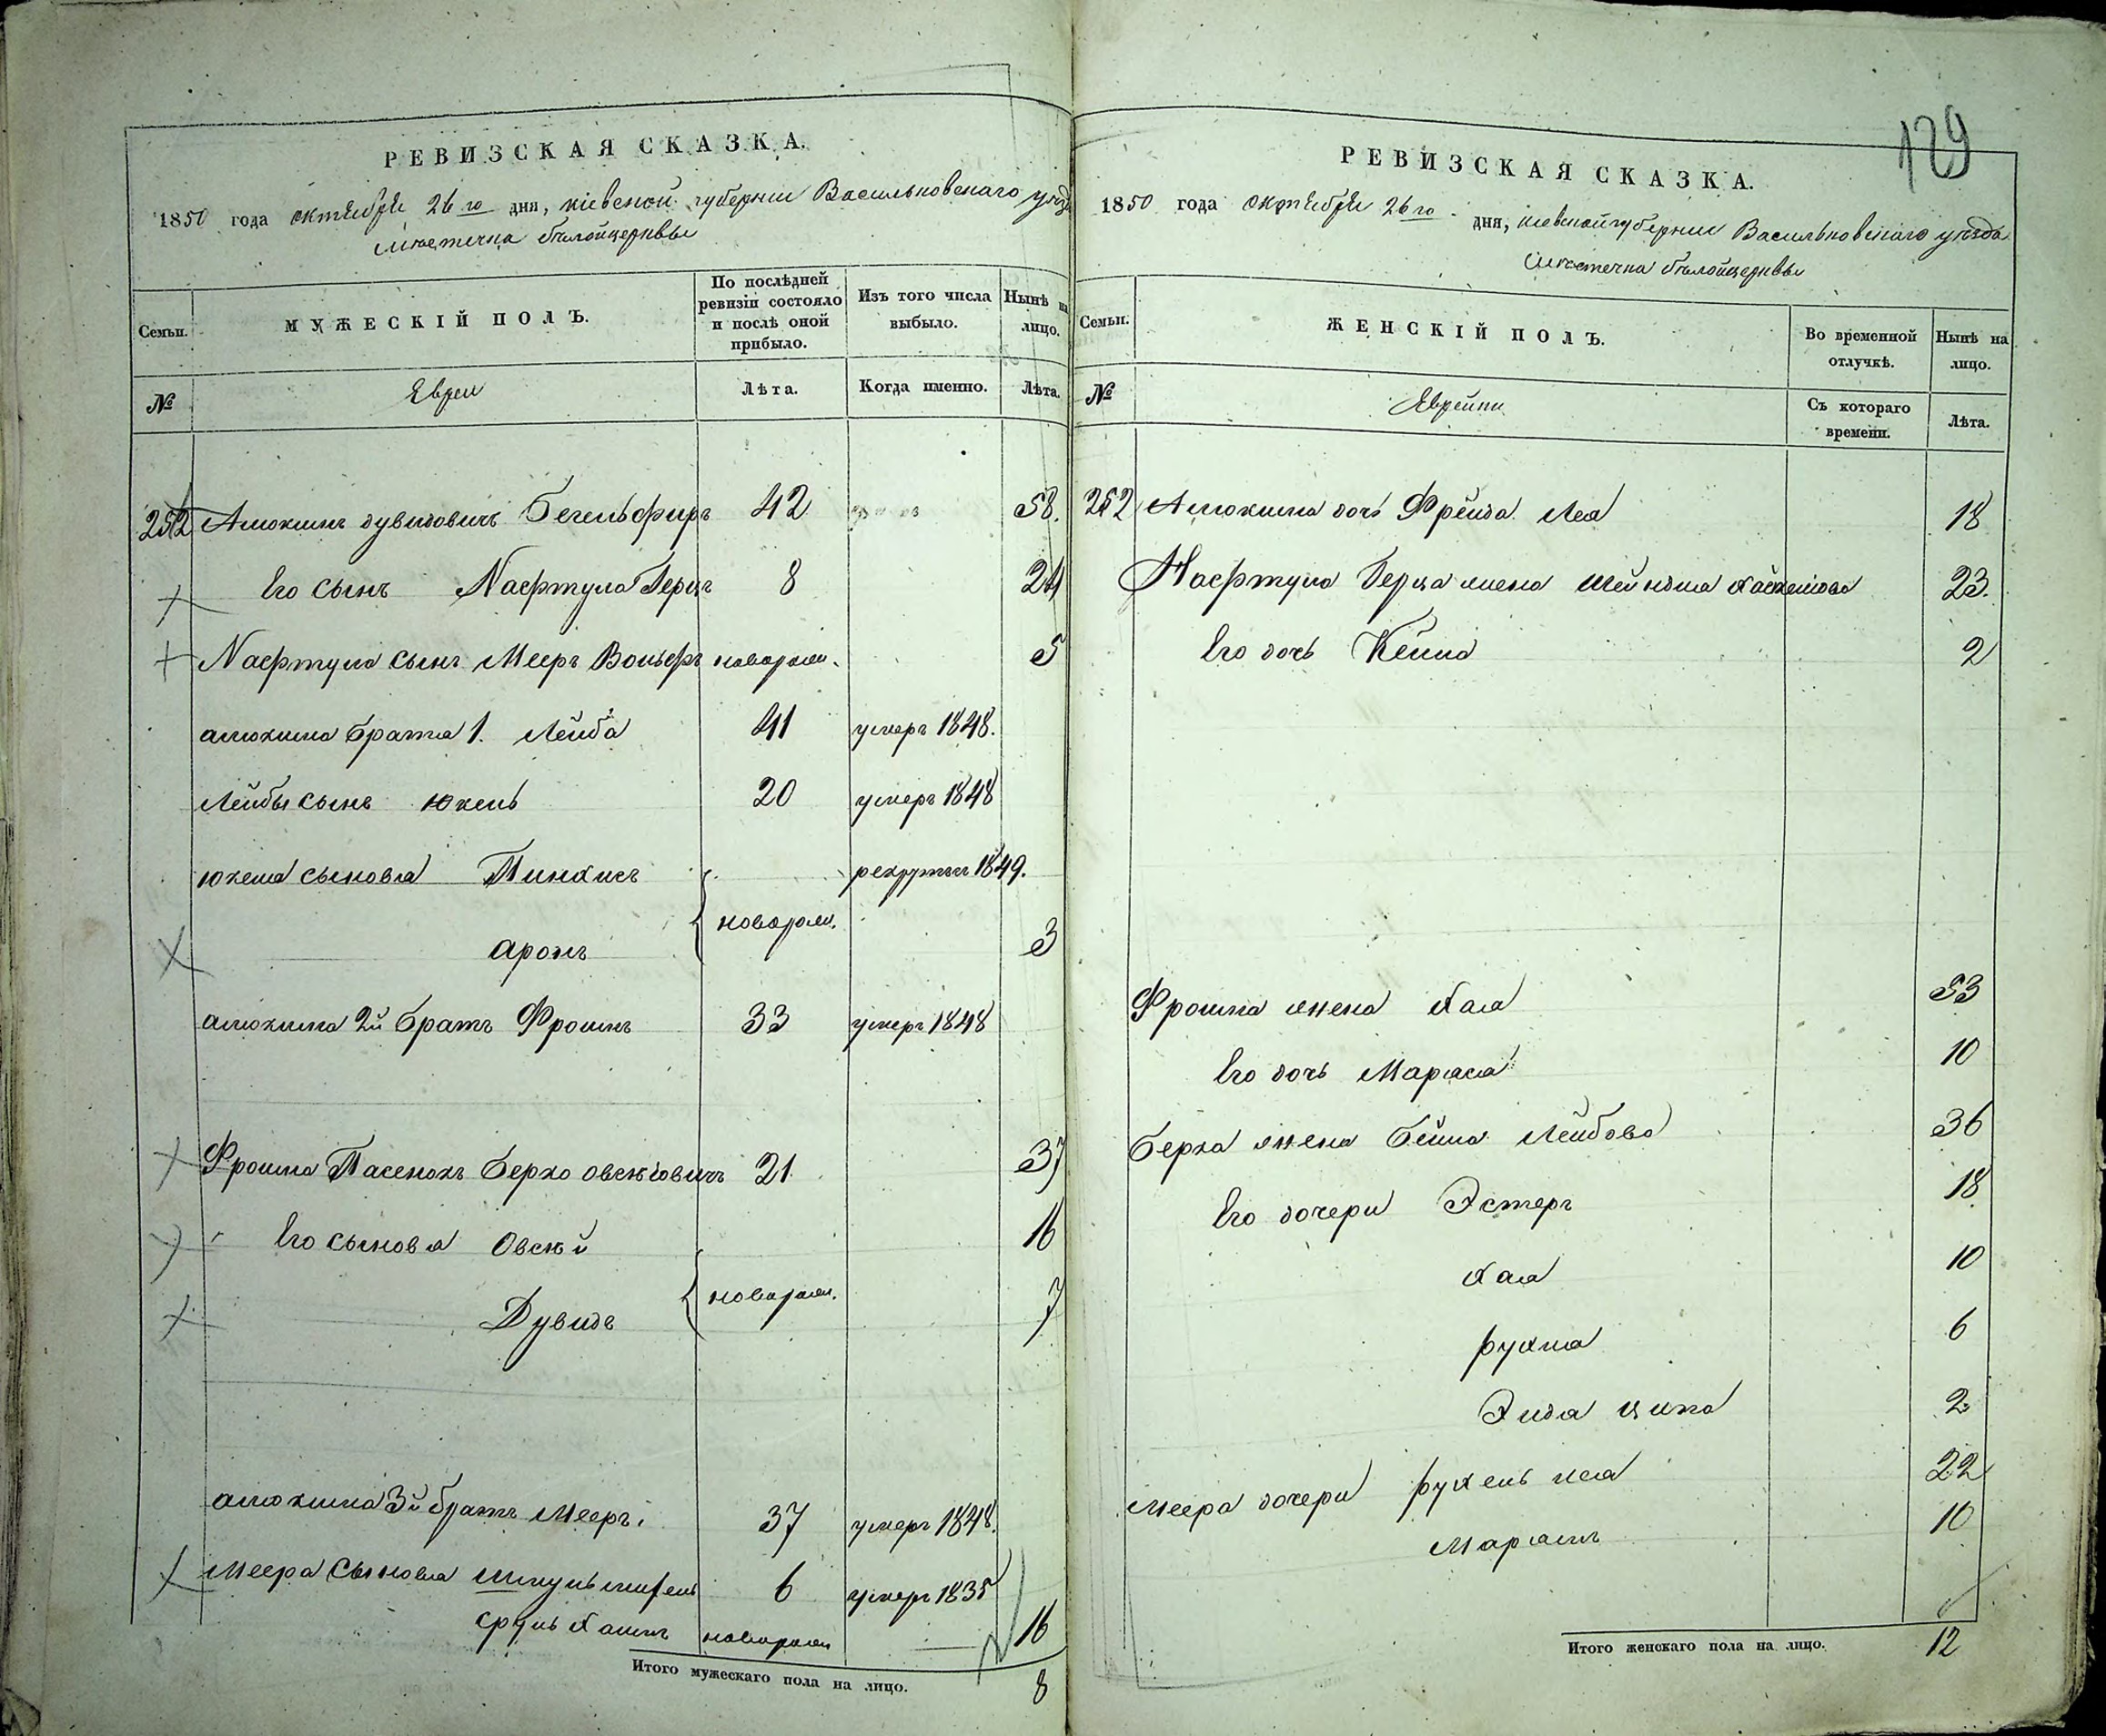 РЕВИЗСКАЯ СКАЗКА.
1850 года октября 26го дня, кіевской губерніи Васильковскаго уѣзда
мѣстечка бѣлойцеркви
Семьи.
МУЖЕСКІЙ ПОЛЪ.
По послѣдней ревизіи состояло и послѣ оной прибыло.
Изъ того числа выбыло.
Нынѣ на лицо.
№
Евреи
Лѣта.
Когда именно.
Лѣта.
252 Аншохима дувидовичъ 42 58.
Его сынъ Нафтула Герцъ 8 24
Нафтула сынъ Мееръ Вольфъ новорож. 5
брата 1. Лейба 41 умеръ 1848.
Лейбы сынъ Юхель 20 умеръ 1848
Юхеля сыновья Пинхасъ рекрутъ 1849.
новорож.
Аронъ 3
2й братъ Фроимъ 33 умеръ 1848
Фроима Пасенокъ Берко Овсѣйовичъ 21. 37
Его сыновья Овсѣй 16
новорож.
Дувидъ 7
3й братъ Мееръ. 37 умеръ 1848.
Меера сыновья 6 умеръ 1835
сруль новорож 16
Итого мужескаго пола на лицо. 8
129
РЕВИЗСКАЯ СКАЗКА.
1850 года октября 26го дня, кіевской губерніи Васильковскаго уѣзда
мѣстечка бѣлойцеркви
Семьи.
ЖЕНСКІЙ ПОЛЪ.
Во временной отлучкѣ.
Нынѣ на лицо.
№
Еврейки
Съ котораго времени.
Лѣта.
252 дочь Фрейда Лея 18
Нафтула Герца жена Шейндля 23.
Его дочь Кейла 2
Фроима жена Хая 53
Его дочь Маряся 10
Берка жена Бейла Лейбова 36
Его дочери Эстеръ 18
Хая 10
Рухля 6
Эидя Ципа 2
Меера дочери Рухель Лея 22
Марьямъ 10
Итого женскаго пола на лицо. 12